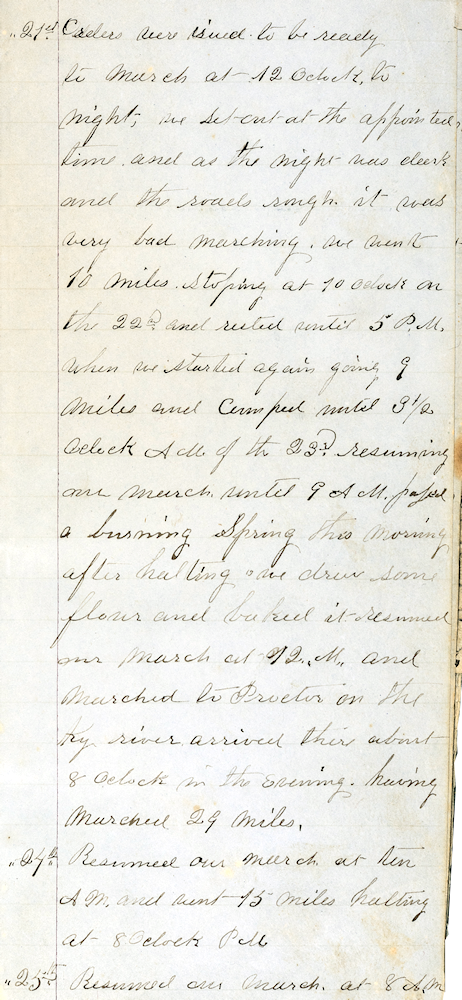 " 21st Orders were issued to be ready
to march at 12 Oclock, to
night, we set out at the appointed
time. and as the night was dark
and the roads rough. it was
very bad marching. we went
10 miles. stoping at 10 oclock on
the 22d and rested until 5 P.M.
when we started again going 9
miles and Camped until 3 1/2
Oclock A M of the 23d resuming
our march. until 9 A M. passed
a burning Spring this morning
after halting we drew some
flour and baked it resumed
our march at 12.,M., and
marched to Proctor on the
Ky river arrived there about
8 Oclock in the Evening. having
marched 29 miles.
" 24th Resumed our march at ten
A M. and went 15 miles halting
at 8 Oclock P M
" 25th Resumed our march. at 8 A M